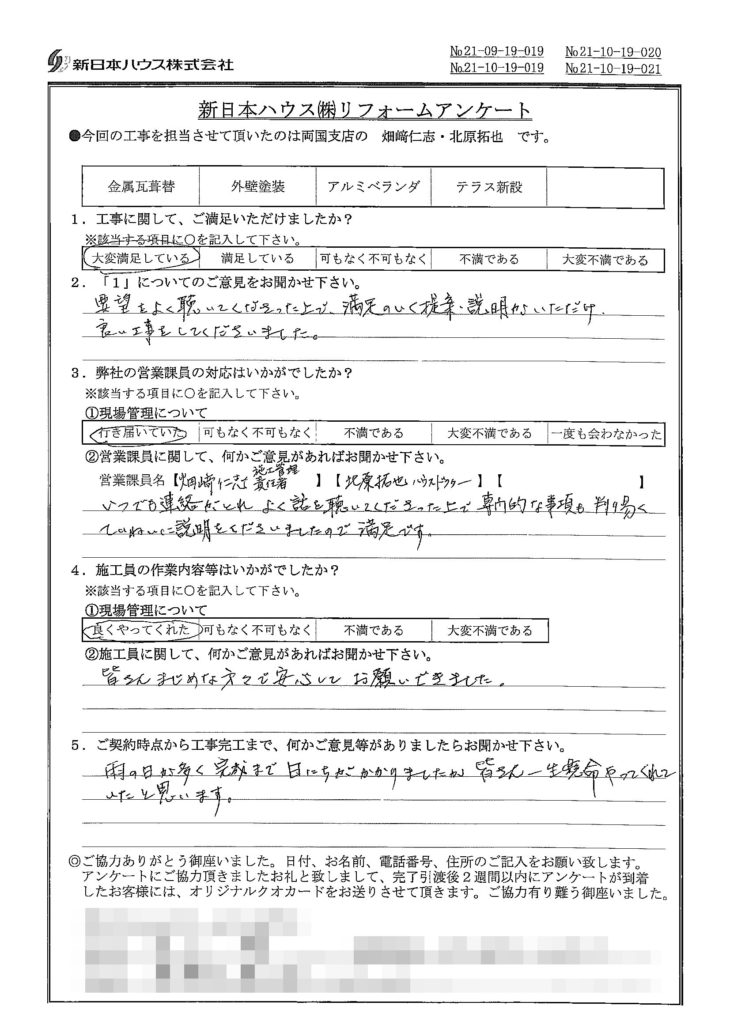 新日本ハウス株式会社
№21-09-19-019 №21-10-19-020
№21-10-19-019 №21-10-19-021
新日本ハウス㈱リフォームアンケート
●今回の工事を担当させて頂いたのは両国支店の 畑﨑仁志・北原拓也 です。
金属瓦葺替 外壁塗装 アルミベランダ テラス新設
1．工事に関して、ご満足いただけましたか？
※該当する項目に○を記入して下さい。
大変満足している 満足している 可もなく不可もなく 不満である 大変不満である
2．「1」についてのご意見をお聞かせ下さい。
要望をよく聴いてくださった上で、満足のいく提案・説明がいただけ、
良い工事をしてくださいました。
3．弊社の営業課員の対応はいかがでしたか？
※該当する項目に○を記入して下さい。
①現場管理について
行き届いていた 可もなく不可もなく 不満である 大変不満である 一度も会わなかった
②営業課員に関して、何かご意見があればお聞かせ下さい。
営業課員名【畑﨑仁志 施工管理責任者】【北原拓也 ハウスドクター】【 】
いつでも連絡がとれ よく話を聴いてくださった上で 専門的な事項も判り易く
ていねいに説明をくださいましたので 満足です。
4．施工員の作業内容等はいかがでしたか？
※該当する項目に○を記入して下さい。
①現場管理について
良くやってくれた 可もなく不可もなく 不満である 大変不満である
②施工員に関して、何かご意見があればお聞かせ下さい。
皆さんまじめな方々で安心して お願いできました。
5．ご契約時点から工事完工まで、何かご意見等がありましたらお聞かせ下さい。
雨の日が多く 完成まで 日にちがかかりましたが 皆さん一生懸命やってくれて
いたと思います。
◎ご協力ありがとう御座いました。日付、お名前、電話番号、住所のご記入をお願い致します。
アンケートにご協力頂きましたお礼と致しまして、完了引渡後２週間以内にアンケートが到着
したお客様には、オリジナルクオカードをお送りさせて頂きます。ご協力有り難う御座いました。